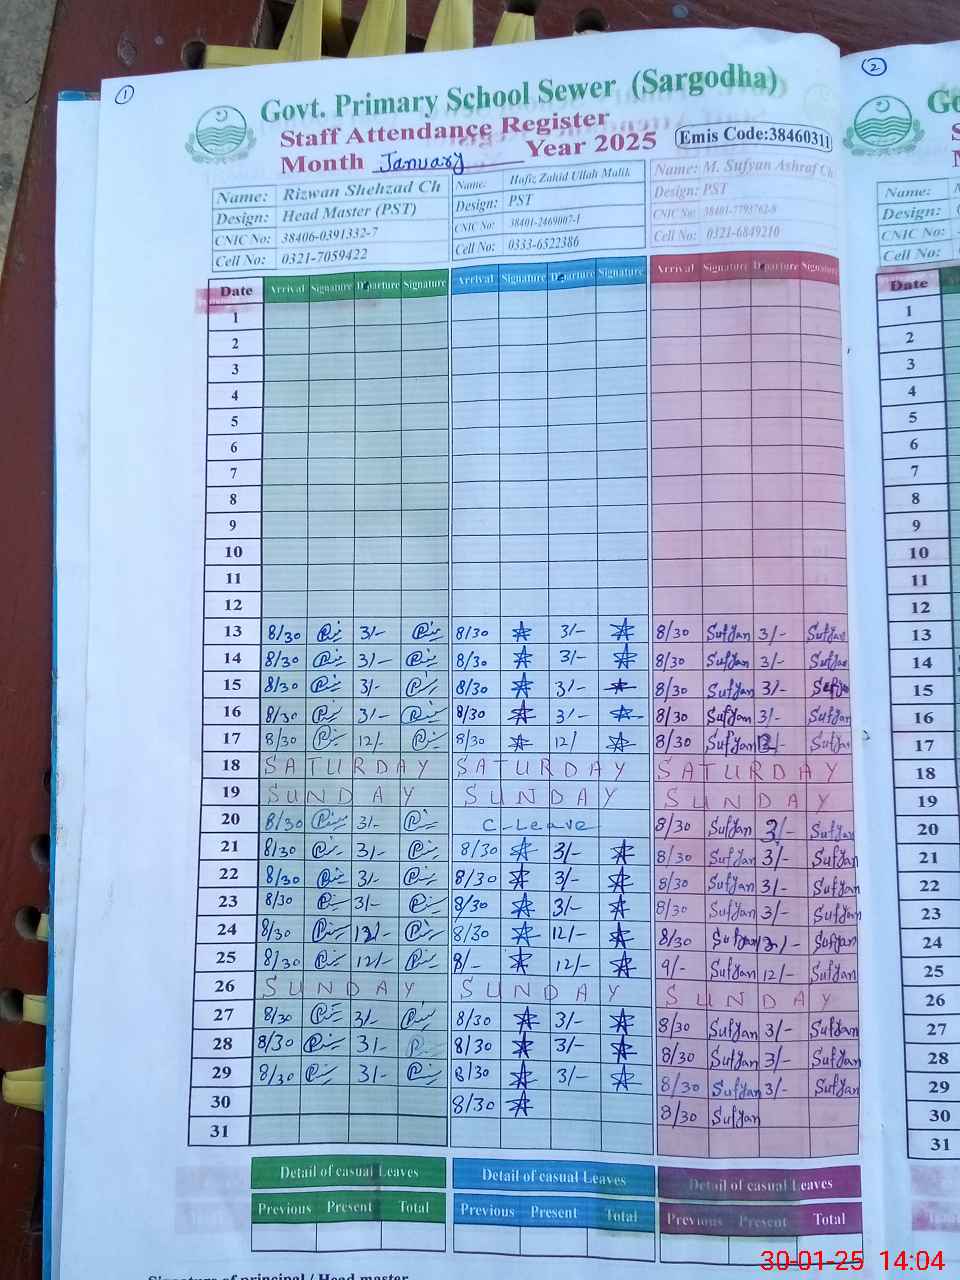 1
2
Govt. Primary School Sewer (Sargodha)
Staff Attendance Register
Month January Year 2025
Emis Code:38460311
Name: Rizwan Shehzad Ch
Design: Head Master (PST)
CNIC No: 38406-0391332-7
Cell No: 0321-7059422
Name: Hafiz Zahid Ullah Malik
Design: PST
CNIC No: 38401-2469007-1
Cell No: 0333-6522386
Name: M. Sufyan Ashraf Ch
Design: PST
CNIC No: 38401-7793762-9
Cell No: 0321-6849210
Date Arrival Signature Departure Signature Arrival Signature Departure Signature Arrival Signature Departure Signature
1
2
3
4
5
6
7
8
9
10
11
12
13 8/30 3/- 8/30 3/- 8/30 Sufyan 3/- Sufyan
14 8/30 3/- 8/30 3/- 8/30 Sufyan 3/- Sufyan
15 8/30 3/- 8/30 3/- 8/30 Sufyan 3/- Sufyan
16 8/30 3/- 8/30 3/- 8/30 Sufyan 3/- Sufyan
17 8/30 12/- 8/30 12/ 8/30 Sufyan Sufyan
18 SATURDAY SATURDAY SATURDAY
19 SUNDAY SUNDAY SUNDAY
20 8/30 3/- C-Leave 8/30 Sufyan 3/- Sufyan
21 8/30 3/- 8/30 3/- 8/30 Sufyan 3/- Sufyan
22 8/30 3/- 8/30 3/- 8/30 Sufyan 3/- Sufyan
23 8/30 3/- 8/30 3/- 8/30 Sufyan 3/- Sufyan
24 8/30 12/- 8/30 12/- 8/30 Sufyan Sufyan
25 8/30 12/- 8/- 12/- 9/- Sufyan 12/- Sufyan
26 SUNDAY SUNDAY SUNDAY
27 8/30 3/- 8/30 3/- 8/30 Sufyan 3/- Sufyan
28 8/30 3/- 8/30 3/- 8/30 Sufyan 3/- Sufyan
29 8/30 3/- 8/30 3/- 8/30 Sufyan 3/- Sufyan
30 8/30 8/30 Sufyan
31
Detail of casual Leaves Detail of casual Leaves Detail of casual Leaves
Previous Present Total Previous Present Total Previous Present Total
Signature of principal / Head master
Name:
Design:
CNIC No:
Cell No:
Date
1
2
3
4
5
6
7
8
9
10
11
12
13
14
15
16
17
18
19
20
21
22
23
24
25
26
27
28
29
30
31
30-01-25 14:04